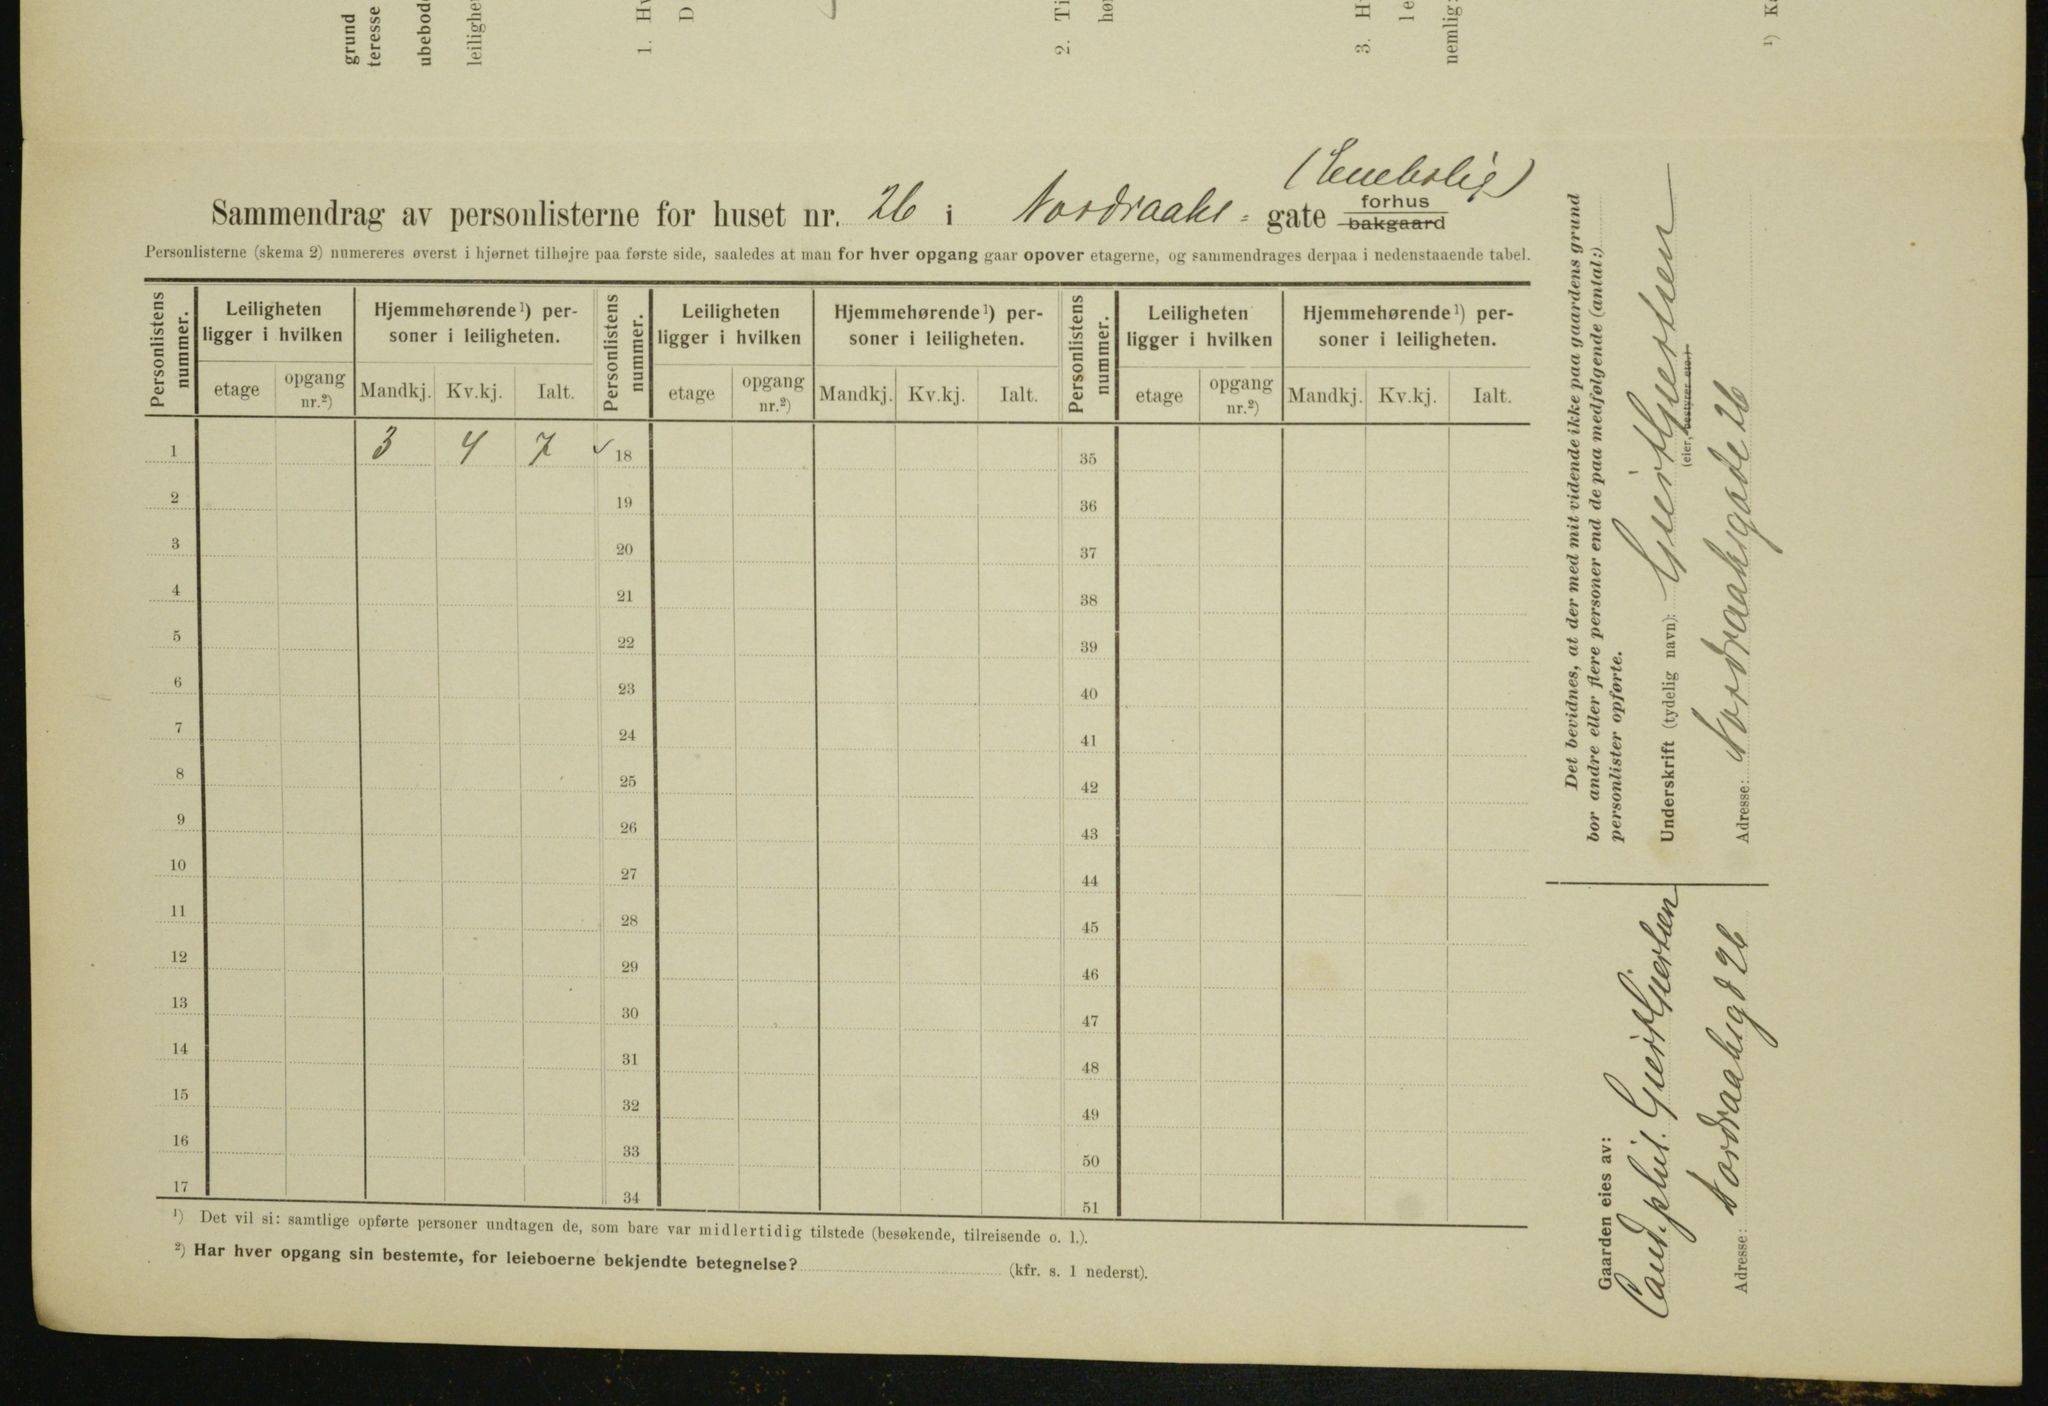 grund
teresse
ubebod
leilighe
1. Hv
D
2. Ti
hø
3. H
le
nemlig:
¹) Ka
(Enebolig)
Sammendrag av personlisterne for huset nr. 26 i Nordraaks gate forhus
bakgaard
Personlisterne (skema 2) numereres øverst i hjørnet tilhøjre paa første side, saaledes at man for hver opgang gaar opover etagerne, og sammendrages derpaa i nedenstaaende tabel.
Personlistens nummer. Leiligheten ligger i hvilken Hjemmehørende¹) personer i leiligheten. Personlistens nummer. Leiligheten ligger i hvilken Hjemmehørende¹) personer i leiligheten. Personlistens nummer. Leiligheten ligger i hvilken Hjemmehørende¹) personer i leiligheten.
etage opgang nr.²) Mandkj. Kv.kj. Ialt. etage opgang nr.²) Mandkj. Kv.kj. Ialt. etage opgang nr.²) Mandkj. Kv.kj. Ialt.
1 3 4 7 ✓ 18 35
2 19 36
3 20 37
4 21 38
5 22 39
6 23 40
7 24 41
8 25 42
9 26 43
10 27 44
11 28 45
12 29 46
13 30 47
14 31 48
15 32 49
16 33 50
17 34 51
¹) Det vil si: samtlige opførte personer undtagen de, som bare var midlertidig tilstede (besøkende, tilreisende o. l.).
²) Har hver opgang sin bestemte, for leieboerne bekjendte betegnelse? (kfr. s. 1 nederst).
Det bevidnes, at der med mit vidende ikke paa gaardens grund
bor andre eller flere personer end de paa medfølgende (antal:)
personlister opførte.
Underskrift (tydelig navn): Gjert Gjertsen
(eier, bestyrer etc.)
Adresse: Nordraaksgate 26
Gaarden eies av:
Cand. phil. Gjert Gjertsen
Adresse: Nordraaksgd 26